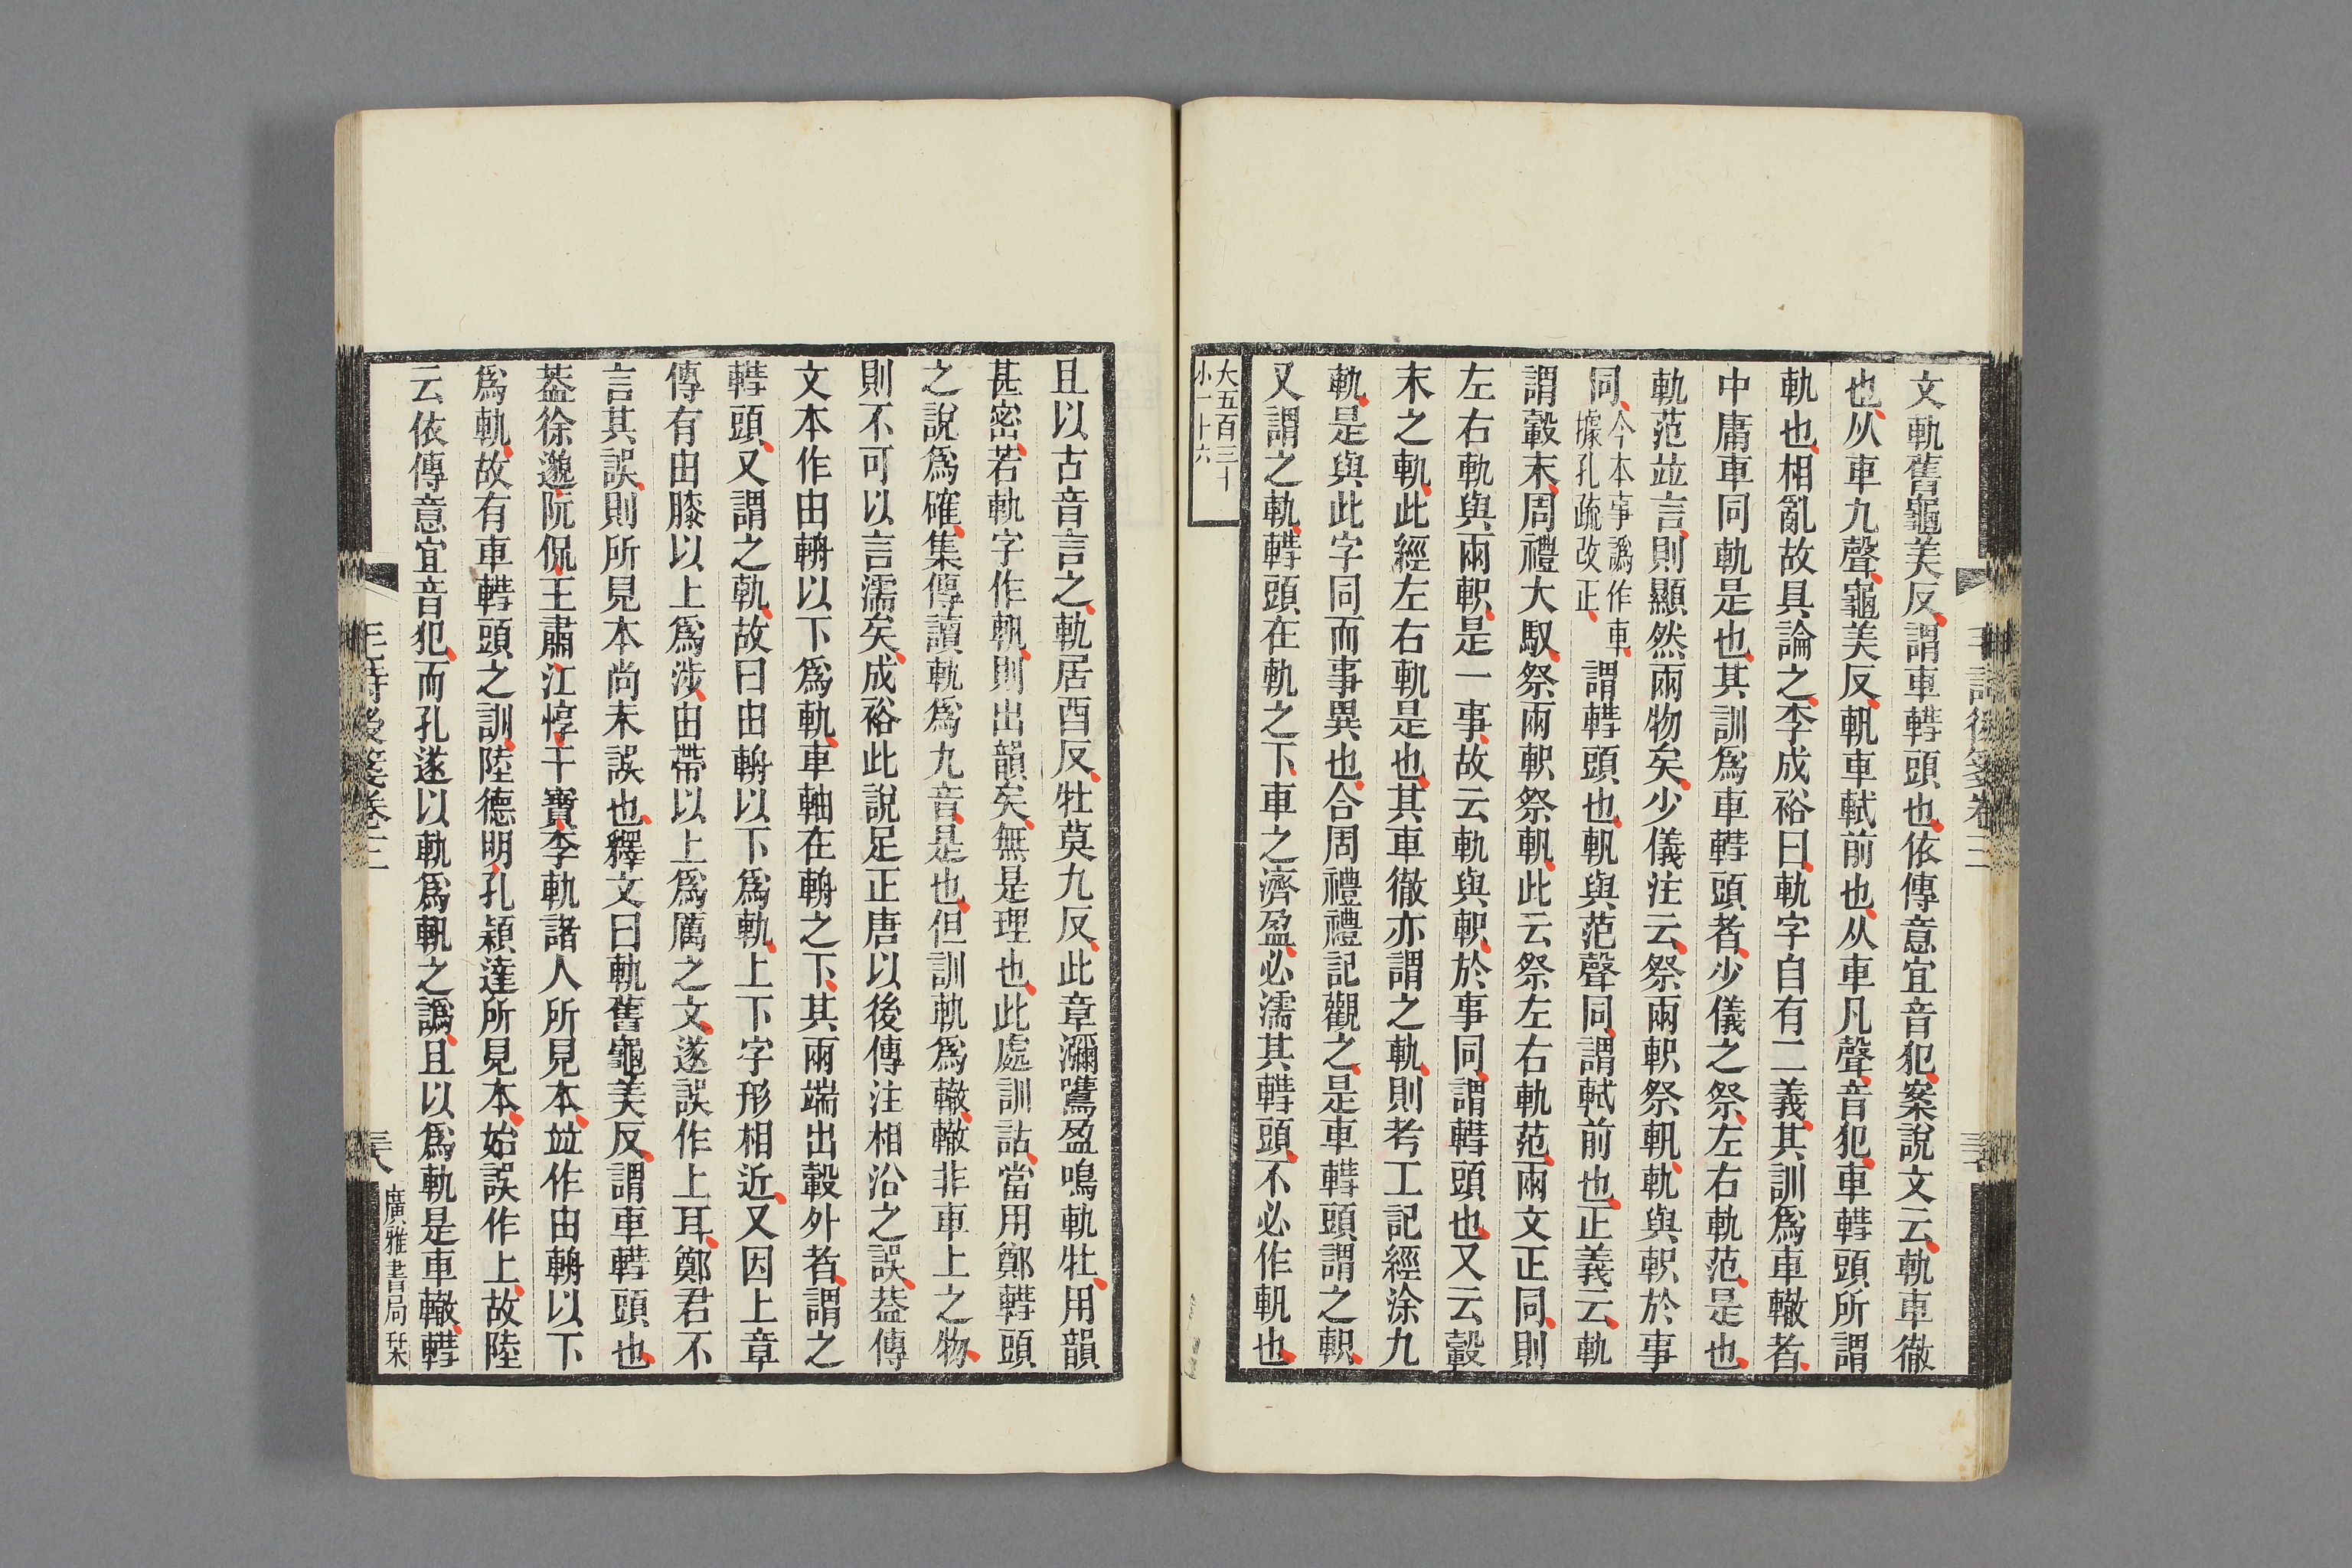 文軌舊龜美反謂車轊頭也依傳意宜音犯案說文云軌車徹
也从車九聲龜美反軓車軾前也从車凡聲音犯車轊頭所謂
軌也相亂故具論之李成裕曰軌字自有二義其訓爲車轍者
中庸車同軌是也其訓爲車轊頭者少儀之祭左右軌范是也
軌范竝言則顯然兩物矣少儀注云祭兩軹祭軓軌與軹於事
同今本事譌作車據孔疏改正謂轊頭也軓與范聲同謂軾前也正義云軌
謂轂末周禮大馭祭兩軹祭軓此云祭左右軌范兩文正同則
左右軌與兩軹是一事故云軌與軹於事同謂轊頭也又云轂
末之軌此經左右軌是也其車徹亦謂之軌則考工記經涂九
軌是與此字同而事異也合周禮禮記觀之是車轊頭謂之軹
又謂之軌轊頭在軌之下車之濟盈必濡其轊頭不必作軓也
大五百三十
小一十六
毛詩後箋卷三
且以古音言之軌居酉反牡莫九反此章瀰鷕盈鳴軌牡用韻
甚密若軌字作軓則出韻矣無是理也此處訓詁當用鄭轊頭
之說爲確集傳讀軌爲九音是也但訓軌爲轍轍非車上之物
則不可以言濡矣成裕此說足正唐以後傳注相沿之誤葢傳
文本作由輈以下爲軌車軸在輈之下其兩端出轂外者謂之
轊頭又謂之軌故曰由輈以下爲軌上下字形相近又因上章
傳有由膝以上爲涉由帶以上爲厲之文遂誤作上耳鄭君不
言其誤則所見本尚未誤也釋文曰軌舊龜美反謂車轊頭也
葢徐邈阮侃王肅江惇干寶李軌諸人所見本竝作由輈以下
爲軌故有車轊頭之訓陸德明孔穎達所見本始誤作上故陸
云依傳意宜音犯而孔遂以軌爲軓之譌且以爲軌是車轍轊
毛詩後箋卷三
三八
廣雅書局栞